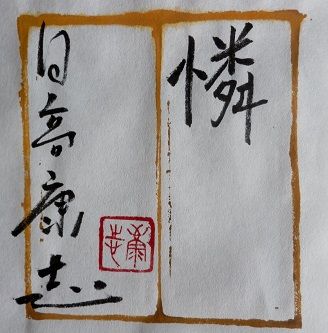 憐
日高康志